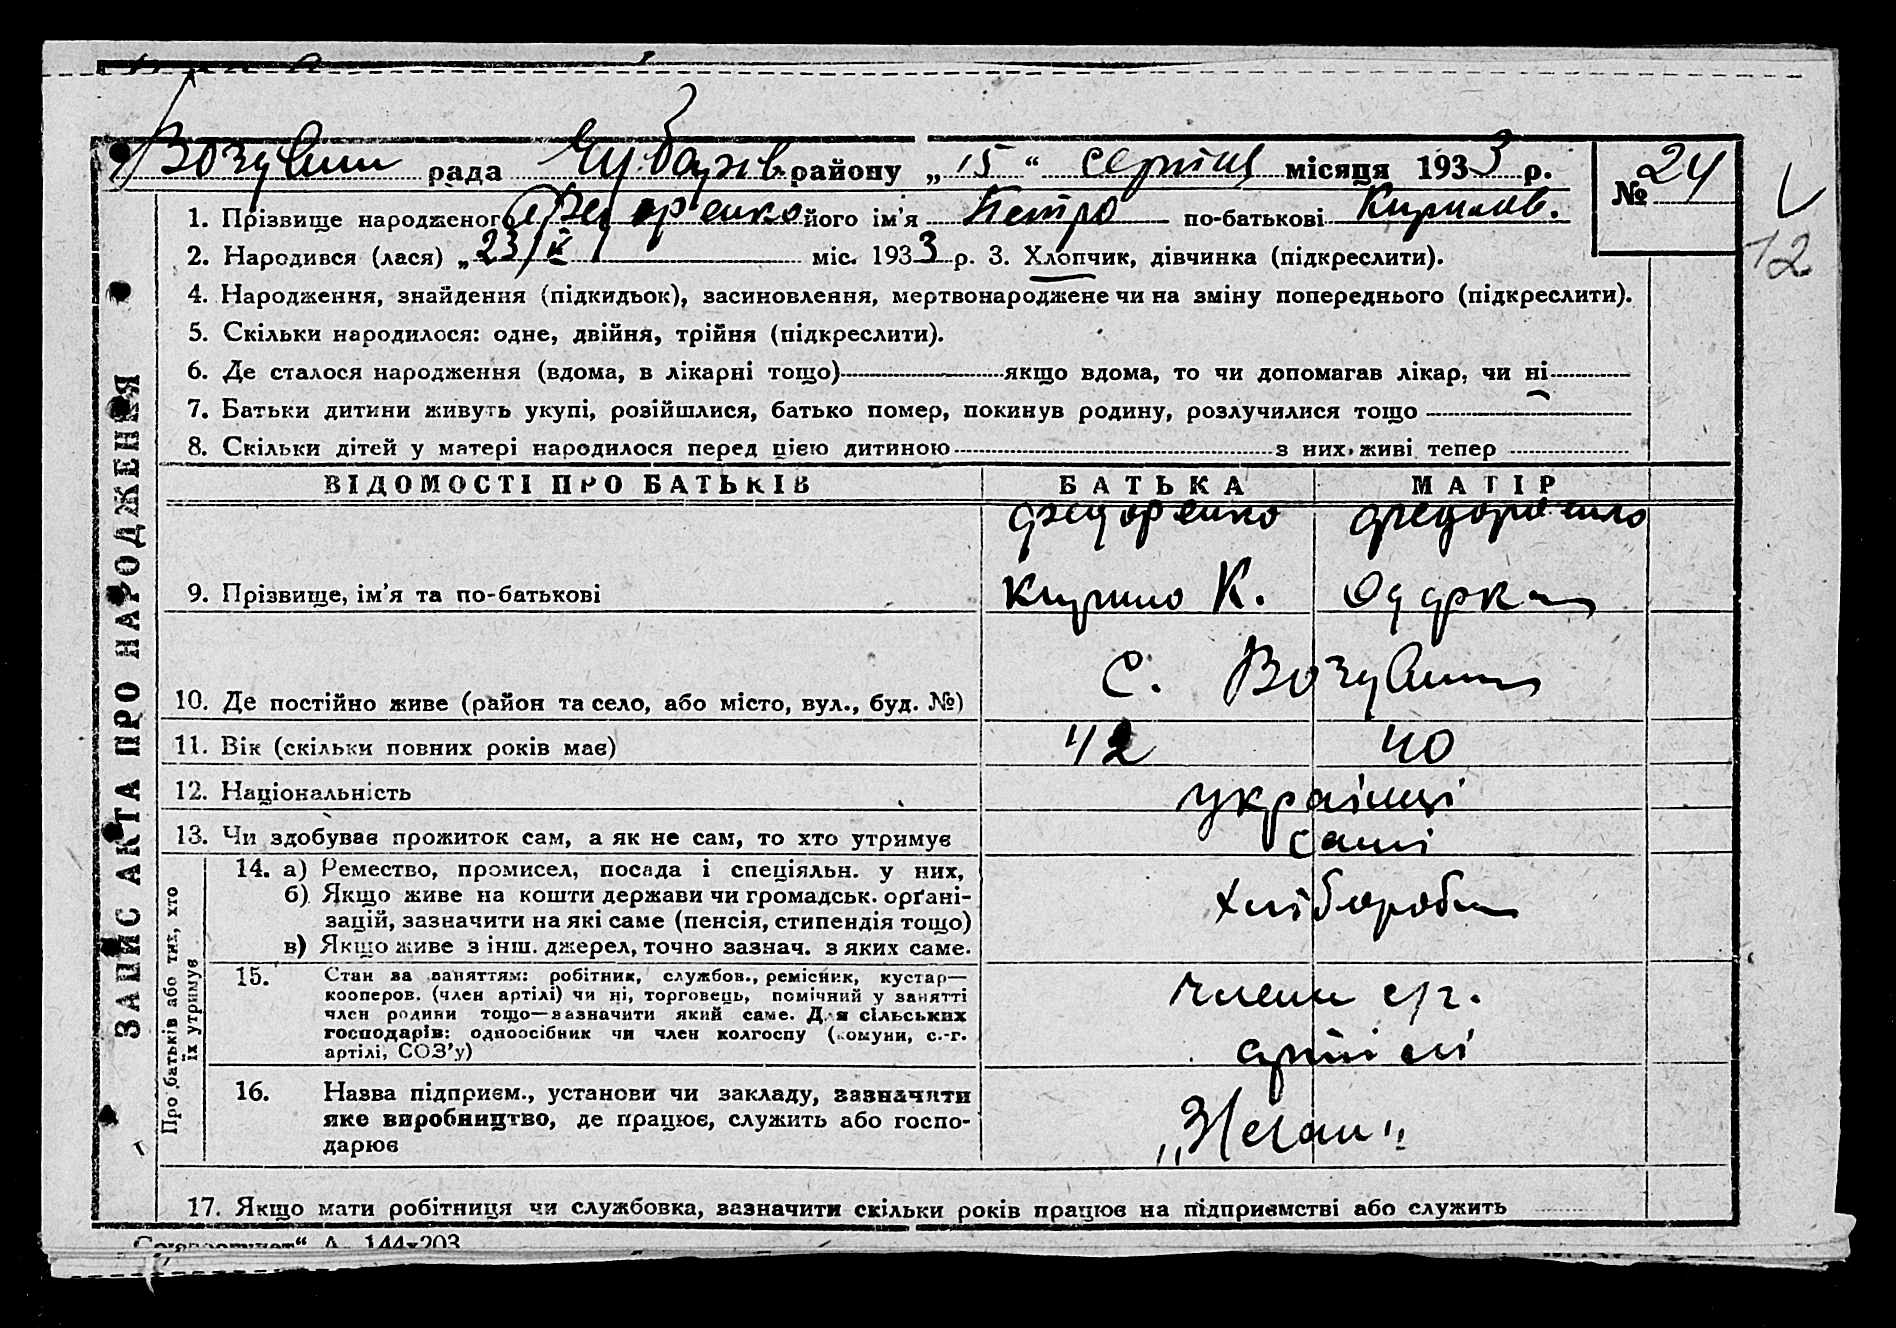 рада району „15“ серпня місяця 1933 р. № 24
1. Прізвище народженого Федоренко його ім’я Петро по-батькові Кирилов.
12
2. Народився (лася) „23/V міс. 1933 р. 3. Хлопчик, дівчинка (підкреслити).
4. Народження, знайдення (підкидьок), засиновлення, мертвонароджене чи на зміну попереднього (підкреслити).
5. Скільки народилося: одне, двійня, трійня (підкреслити).
6. Де сталося народження (вдома, в лікарні тощо) якщо вдома, то чи допомагав лікар, чи ні
7. Батьки дитини живуть укупі, розійшлися, батько помер, покинув родину, розлучилися тощо
8. Скільки дітей у матері народилося перед цією дитиною з них живі тепер
ЗАПИС АКТА ПРО НАРОДЖЕННЯ
ВІДОМОСТІ ПРО БАТЬКІВ БАТЬКА МАТІР
Федоренко Федоренко
9. Прізвище, ім’я та по-батькові Кирило К. Одарка
с.
10. Де постійно живе (район та село, або місто, вул., буд. №)
11. Вік (скільки повних років має) 42 40
12. Національність українці
13. Чи здобуває прожиток сам, а як не сам, то хто утримує самі
Про батьків або тих, хто
їх утримує
14. а) Ремество, промисел, посада і спеціяльн. у них,
б) Якщо живе на кошти держави чи громадськ. орґані-
зацій, зазначити на які саме (пенсія, стипендія тощо)
в) Якщо живе з інш. джерел, точно зазнач. з яких саме.
хлібороби
15. Стан за заняттям: робітник, службов., ремісник, кустар—
кооперов. (член артілі) чи ні, торговець, помічний у занятті
член родини тощо—зазначити який саме. Для сільських
господарів: одноосібник чи член колгоспу (комуни, с.-г.
артілі, СОЗ’у)
члени с/г.
артілі
16. Назва підприєм., установи чи закладу, зазначити
яке виробництво, де працює, служить або госпо-
дарює
17. Якщо мати робітниця чи службовка, зазначити скільки років працює на підприємстві або служить
А. 144-203